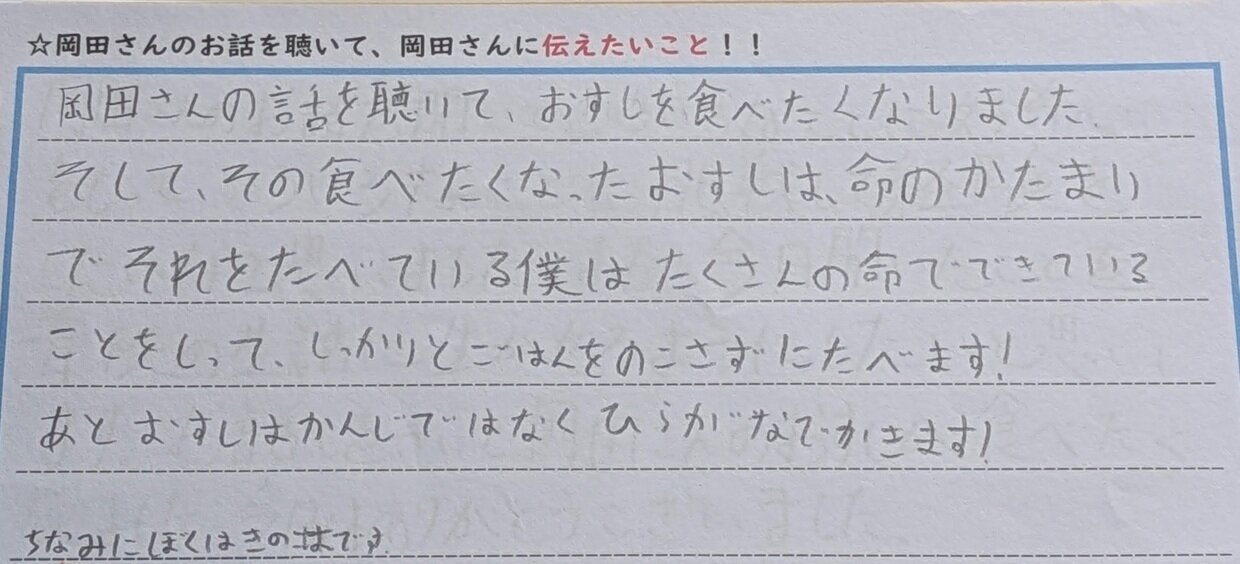 ☆岡田さんのお話を聴いて、岡田さんに伝えたいこと！！
岡田さんの話を聴いて、おすしを食べたくなりました.
そして、その食べたくなったおすしは、命のかたまり
でそれをたべている僕はたくさんの命でできている
ことをしって、しっかりとごはんをのこさずにたべます!
あとおすしはかんじではなくひらがなでかきます!
ちなみにぼくはきの